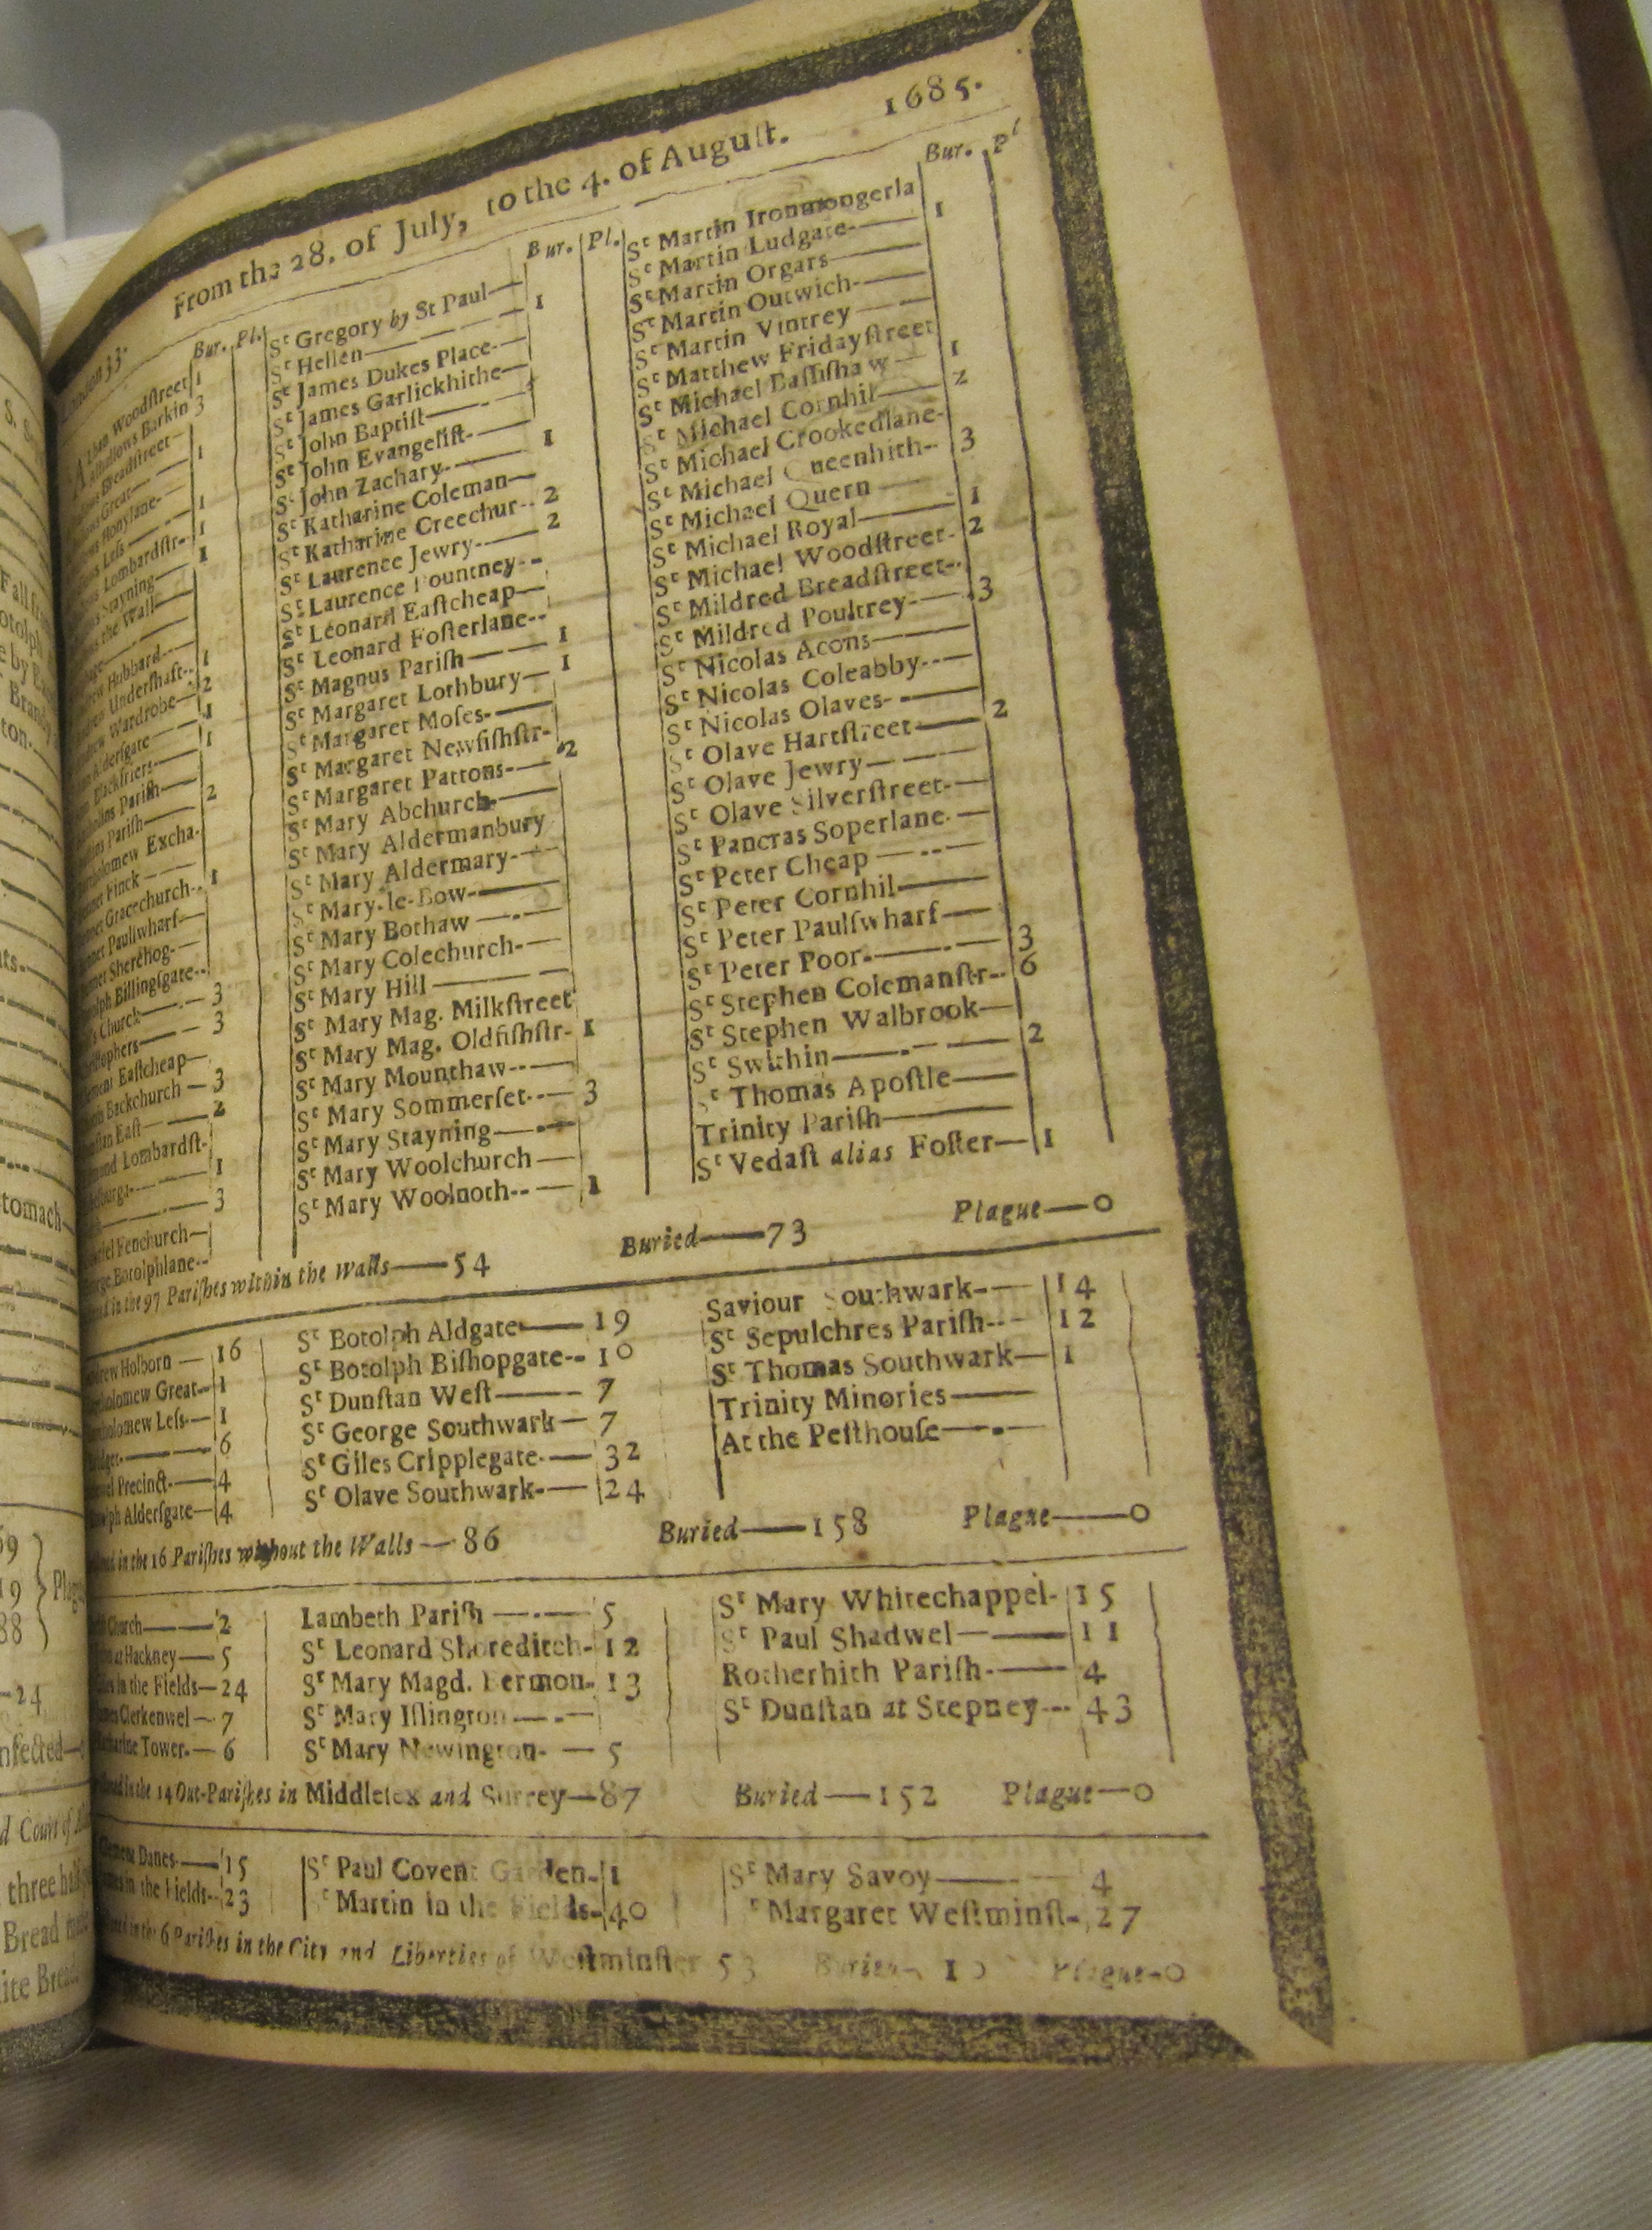 From the 28. of July, to the 4. of August. 1685.
Bur. Pl.
Woodstreet 1
Barkin 3
Breadstreet
Great 1
Honylane
Less 1
Lombardstr 1
Stayning 1
the Wall
Hubbard
Undershaft 1
Wardrobe 2
Aldersgate 1
Blackfriers 1
Parish
Parish 2
Excha
Finck
Gracechurch 1
Paulswharf
Sherehog
Billingsgate
Church 3
3
Eastcheap
Backchurch 3
East 2
Lombardst
1
3
Fenchurch
Botolphlane
Bur. Pl.
St Gregory by St Paul
St Hellen 1
St James Dukes Place
St James Garlickhithe
St John Baptist
St John Evangelist
St John Zachary 1
St Katharine Coleman
St Katharine Creechur 2
St Laurence Jewry 2
St Laurence Pountney
St Leonard Eastcheap
St Leonard Fosterlane
St Magnus Parish 1
St Margaret Lothbury 1
St Margaret Moses
St Margaret Newfishstr
St Margaret Pattons 2
St Mary Abchurch
St Mary Aldermanbury
St Mary Aldermary
St Mary-le-Bow
St Mary Bothaw
St Mary Colechurch
St Mary Hill
St Mary Mag. Milkstreet
St Mary Mag. Oldfishstr 1
St Mary Mounthaw
St Mary Sommerset 3
St Mary Stayning
St Mary Woolchurch
St Mary Woolnoth 1
Bur. Pl
St Martin Ironmongerla
St Martin Ludgate 1
St Martin Orgars
St Martin Outwich
St Martin Vintrey
St Matthew Fridaystreet
St Michael Bassishaw 1
St Michael Cornhil 2
St Michael Crookedlane
St Michael Queenhith 3
St Michael Quern
St Michael Royal 1
St Michael Woodstreet 2
St Mildred Breadstreet
St Mildred Poultrey 3
St Nicolas Acons
St Nicolas Coleabby
St Nicolas Olaves
St Olave Hartstreet 2
St Olave Jewry
St Olave Silverstreet
St Pancras Soperlane
St Peter Cheap
St Peter Cornhil
St Peter Paulswharf
St Peter Poor 3
St Stephen Colemanstr 6
St Stephen Walbrook
St Swithin 2
St Thomas Apostle
Trinity Parish
St Vedast alias Foster 1
in the 97 Parishes within the Walls—54 Buried—73 Plague—0
Holborn 16
Great 1
Less 1
6
Precinct 4
Aldersgate 4
St Botolph Aldgate 19
St Botolph Bishopgate 10
St Dunstan West 7
St George Southwark 7
St Giles Cripplegate 32
St Olave Southwark 24
Saviour Southwark 14
St Sepulchres Parish 12
St Thomas Southwark 1
Trinity Minories
At the Pesthouse
in the 16 Parishes without the Walls—86 Buried—158 Plague—0
Church 2
at Hackney 5
in the Fields 24
Clerkenwel 7
Tower 6
Lambeth Parish 5
St Leonard Shoreditch 12
St Mary Magd. Bermon 13
St Mary Islington
St Mary Newington 5
St Mary Whitechappel 15
St Paul Shadwel 11
Rotherhith Parish 4
St Dunstan at Stepney 43
in the 14 Out-Parishes in Middlesex and Surrey—87 Buried—152 Plague—0
Danes 15
in the Fields 23
St Paul Covent Garden 1
St Martin in the Fields 40
St Mary Savoy 4
St Margaret Westminst 27
in the 6 Parishes in the City and Liberties of Westminster 53 Buried Plague-0